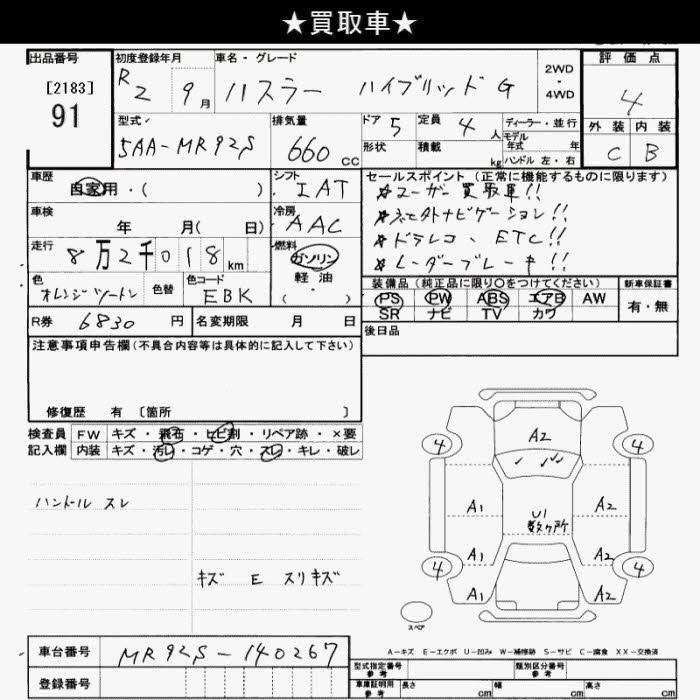 ★買取車★
出品番号 初度登録年月 車名・グレード 評価点
[2183] R2 9月 ハスラー ハイブリッド G 2WD・4WD 4
91
型式 排気量 ドア 5 定員 4人 ディーラー・並行 外装 内装
5AA-MR92S 660cc 形状 積載 kg モデル年式 年 C B
ハンドル 左・右
車歴 自家用・( ) シフト IAT セールスポイント(正常に機能するものに限ります)
☆ユーザー買取車!!
車検 年 月( 日) 冷房 AAC ☆社外ナビゲーション!!
走行 8万2千018km 燃料 ガソリン 軽油 ( ) ☆ドラレコ、ETC!!
☆レーダーブレーキ!!
色 オレンジツートン 色替 色コード EBK 装備品(純正品に限り○をつけてください) 新車保証書
PS PW ABS エアB AW 有・無
SR ナビ TV カワ
R券 6830円 名変期限 月 日 後日品
注意事項申告欄(不具合内容等は具体的に記入して下さい)
修復歴 有 〔箇所 〕
検査員 FW キズ・飛石・ヒビ割・リペア跡・×要
記入欄 内装 キズ・汚レ・コゲ・穴・スレ・キレ・破レ
ハンドル スレ
キズ E スリキズ
A2
4 4
A1 A2
U1
数ヶ所
A1 A2
4 4
A1 A2
スペア
A−キズ E−エクボ U−凹み W−補修跡 S−サビ C−腐食 XX−交換済
車台番号 MR92S-140267
型式指定番号 参考 類別区分番号 参考
登録番号 車庫証明用 参考 長さ cm 幅 cm 高さ cm